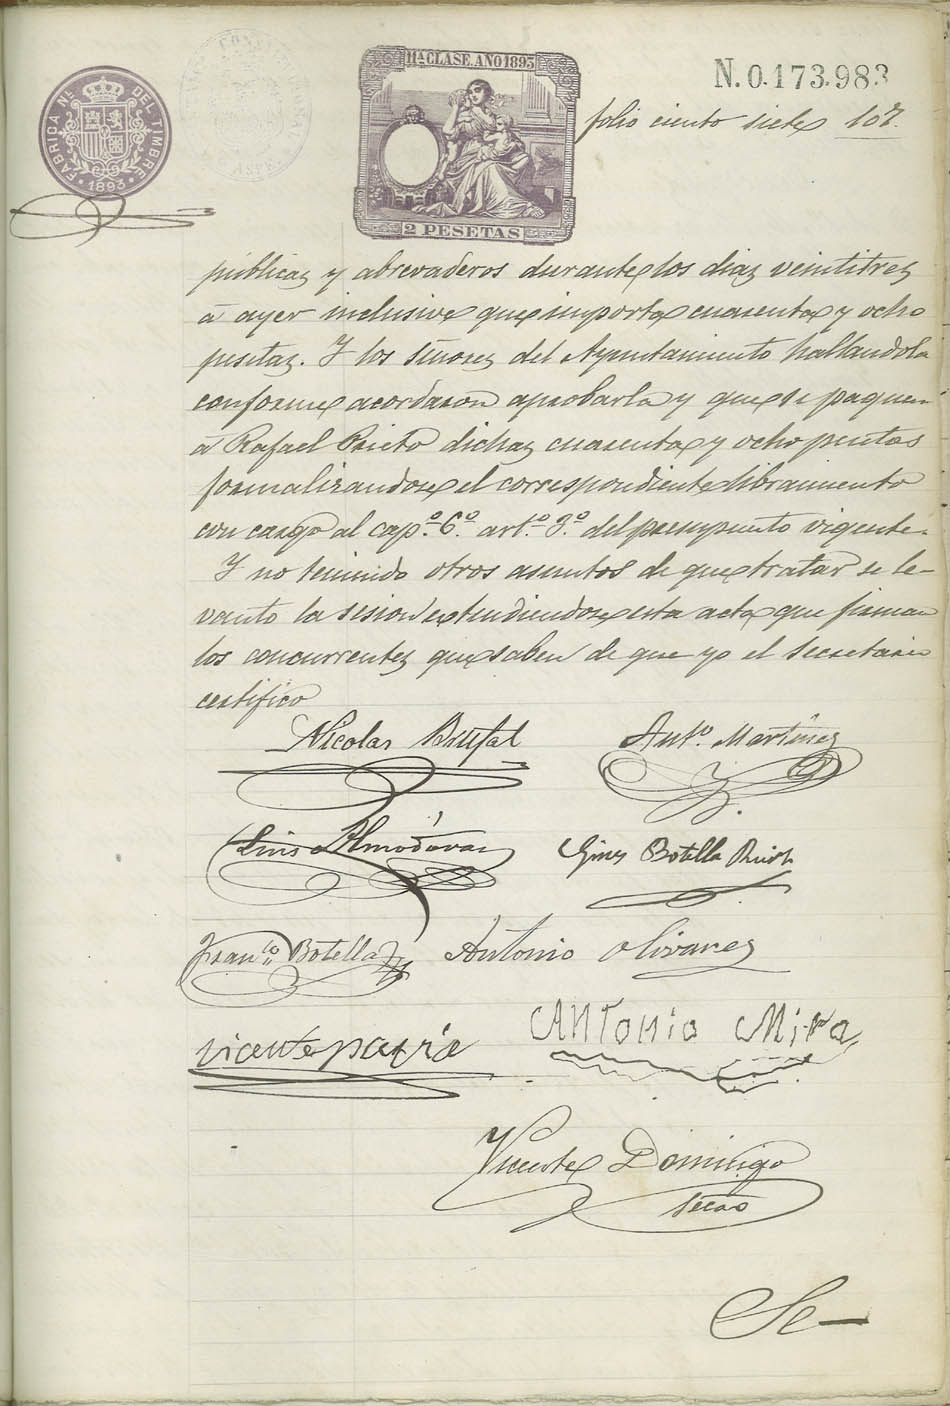 FABRICA Nal DEL TIMBRE
1893
11ª CLASE. AÑO 1893
2 PESETAS
N. 0.173.983
folio ciento siete 107.
públicas y abrevaderos durante los dias veintitres
á ayer inclusive que importa cuarenta y ocho
pesetas. Y los Señores del Ayuntamiento hallandola
conforme acordaron aprobarla y que se paguen
á Rafael Prieto dichas cuarenta y ocho pesetas
formalizandose el correspondiente libramiento
con cargo al cap.º 6.º art.º 3.º del presupuesto vigente.
Y no teniendo otros asuntos de que tratar se le-
vanto la sesion extendiendose esta acta que firman
los concurrentes que saben de que yo el Secretario
certifico
Nicolas Brufal Antº. Martinez
Luis Almodóvar Gines Botella Ruiz
Franco. Botella Antonio Olivares
vicente Antonio Mira
Vicente Domingo
Secrio
Se—